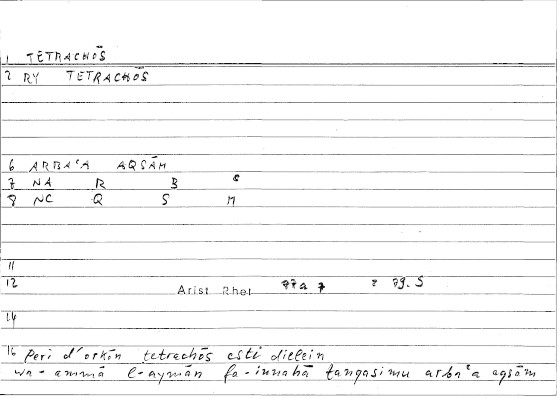 1 TETRACHŌS
2 RY TETRACHŌS
6 ARBAʿA AQSĀM
7 NA R B ʿ
8 NC Q S M
11
12 Arist Rhet 77a 7 79.5
14
16 Peri d'orkōn tetrachōs esti dielein
wa-ammā l-aymān fa-innahā tanqasimu arbaʿa aqsām